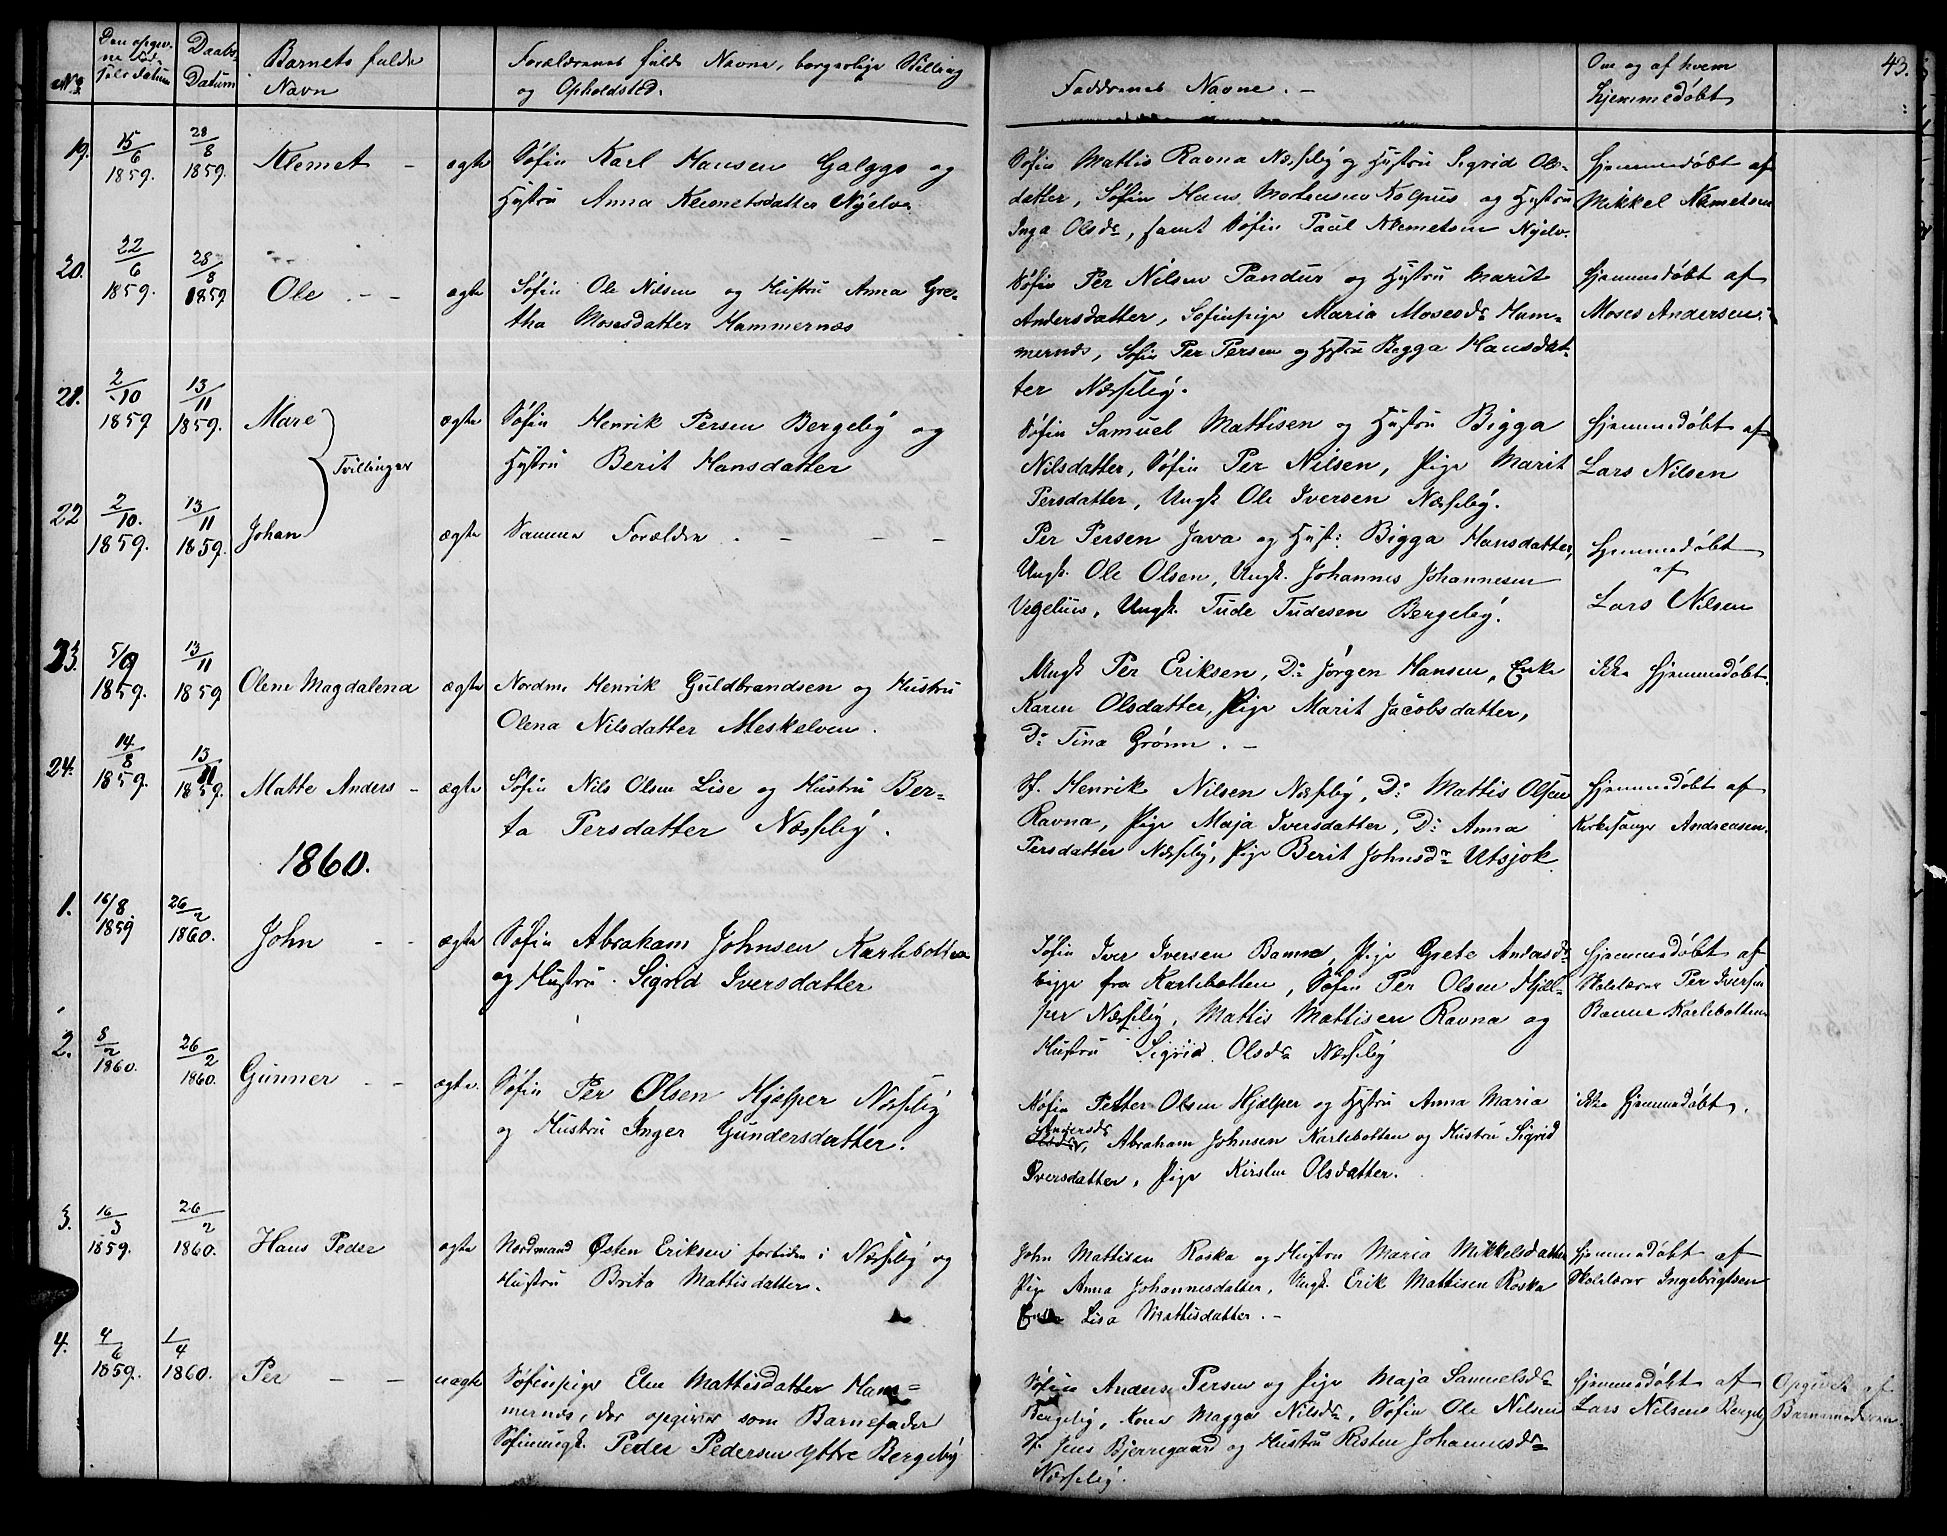 43.
No
Den opgiv-
ne Fød-
sels datum
Daabs
Datum
Barnets fulde
Navn
Forældrenes fulde Navne, borgerlige Stilling
og Opholdsted.
Faddrenes Navne. -
Om og af hvem
hjemmedøbt
19.
15/6
1859.
28/8
1859.
Klemet -
ægte
Søfin Karl Hansen Galggo og
Hustru Anna Klemetsdatter Nyelv.
Søfin Mattis Ravna Næsseby og Hustru Sigrid Ols-
datter, Søfin Hans Mortensen Kolpus og Hustru
Inga Olsdr, samt Søfin Paul Klemetsen Nyelv.
hjemmedøbt af
Mikkel Klemetsen
20.
22/6
1859.
28/8
1859
Ole - -
ægte
Søfin Ole Nilsen og Hustru Anna Gre-
tha Mosesdatter Hammernæs
Søfin Per Nilsen Pandur og Hustru Marit
Andersdatter, Søfinpige Maria Mosesdr Ham-
mernæs, Søfin Per Persen og Hustru Bagga Hansdat-
ter Næsseby.
hjemmedøbt af
Moses Andersen.
21.
2/10
1859
13/11
1859.
Mare
Tvillinger
ægte
Søfin Henrik Persen Bergeby og
Hustru Berit Hansdatter
Søfin Samuel Mattisen og Hustru Bigga
Nilsdatter, Søfin Per Nilsen, Pige Marit
Persdatter, Ungk Ole Iversen Næsseby.
hjemmedøbt af
Lars Nilsen
22
2/10.
1859.
13/11
1859.
Johan
ægte
Samme Forældre. - - -
Per Persen Java og Hust: Bigga Hansdatter,
Ungk. Ole Olsen, Ungk. Johannes Johannesen
Vegelius, Ungk. Tude Tudesen Bergeby.
hjemmedøbt
af
Lars Nilsen
23.
5/9
1859.
13/11
1859
Oline Magdalena
ægte
Nordm. Henrik Guldbrandsen og Hustru
Olena Nilsdatter Meskelven.
Ungk Per Eriksen, Do Jørgen Hansen, Enke
Karen Olsdatter, Pige Marit Jacobsdatter,
Do Tina Grønn. -
ikke hjemmedøbt.
24.
14/8
1859.
13/11
1859.
Matte Anders -
ægte
Søfin Nils Olsen Lise og Hustru Ber-
ta Persdatter Næsseby.
Sf. Henrik Nilsen Næsseby, Do Mattis Olsen
Ravna, Pige Maja Iversdatter, Do Anna
Persdatter Næsseby, Pige Berit Johnsdr Utsjok.
hjemmedøbt af
Kirkesanger Andreasen.
1860.
1.
16/8
1859
26/2
1860.
John - -
ægte
Søfin Abraham Johnsen Karlebotten
og Hustru Sigrid Iversdatter
Søfin Iver Iversen Banne, Pige Grete Andersdr
begge fra Karlebotten, Søfin Per Olsen Hjæl-
per Næsseby, Mattis Mattisen Ravna og
Hustru Sigrid Olsdr Næsseby
hjemmedøbt af
Skolelærer Per Iversen
Banne Karlebotten
2.
8/2
1860.
26/2
1860.
Gunner - -
ægte.
Søfin Per Olsen Hjælper Næsseby
og Hustru Inger Gundersdatter.
Søfin Petter Olsen Hjælper og Hustru Anna Maria
Andersdr
Olsdr, Abraham Johnsen Karlebotten og Hustru Sigrid
Iversdatter, Pige Kirsten Olsdatter.
ikke hjemmedøbt.
3.
16/3
1859.
26/2
1860.
Hans Peder
ægte
Nordmand Østen Eriksen fortiden i Næsseby og
Hustru Brita Mattisdatter.
John Mattisen Roska og Hustru Maria Mikkelsdatter
Pige Anna Johannesdatter, Ungk. Erik Mattisen Roska
Enke Lisa Mattisdatter. -
hjemmedøbt af
Skolelærer Ingebrigtsen
4.
4/6
1859.
1/4
1860.
Per - -
uægte
Søfinpige Elen Mattisdatter Ham-
mernæs, der opgiver som Barnefader
Søfinungk. Peder Pedersen Yttre Bergeby
Søfin Anders Persen og Pige Maja Samuelsdr
Bergeby, Kone Magga Nilsdr, Søfin Ole Nilsen
Sf. Jens Bjerregaard og Hustru Risten Johannesdr
Næsseby.
hjemmedøbt af
Lars Nilsens Bergeby
Opgivet af
Barnemoderen.